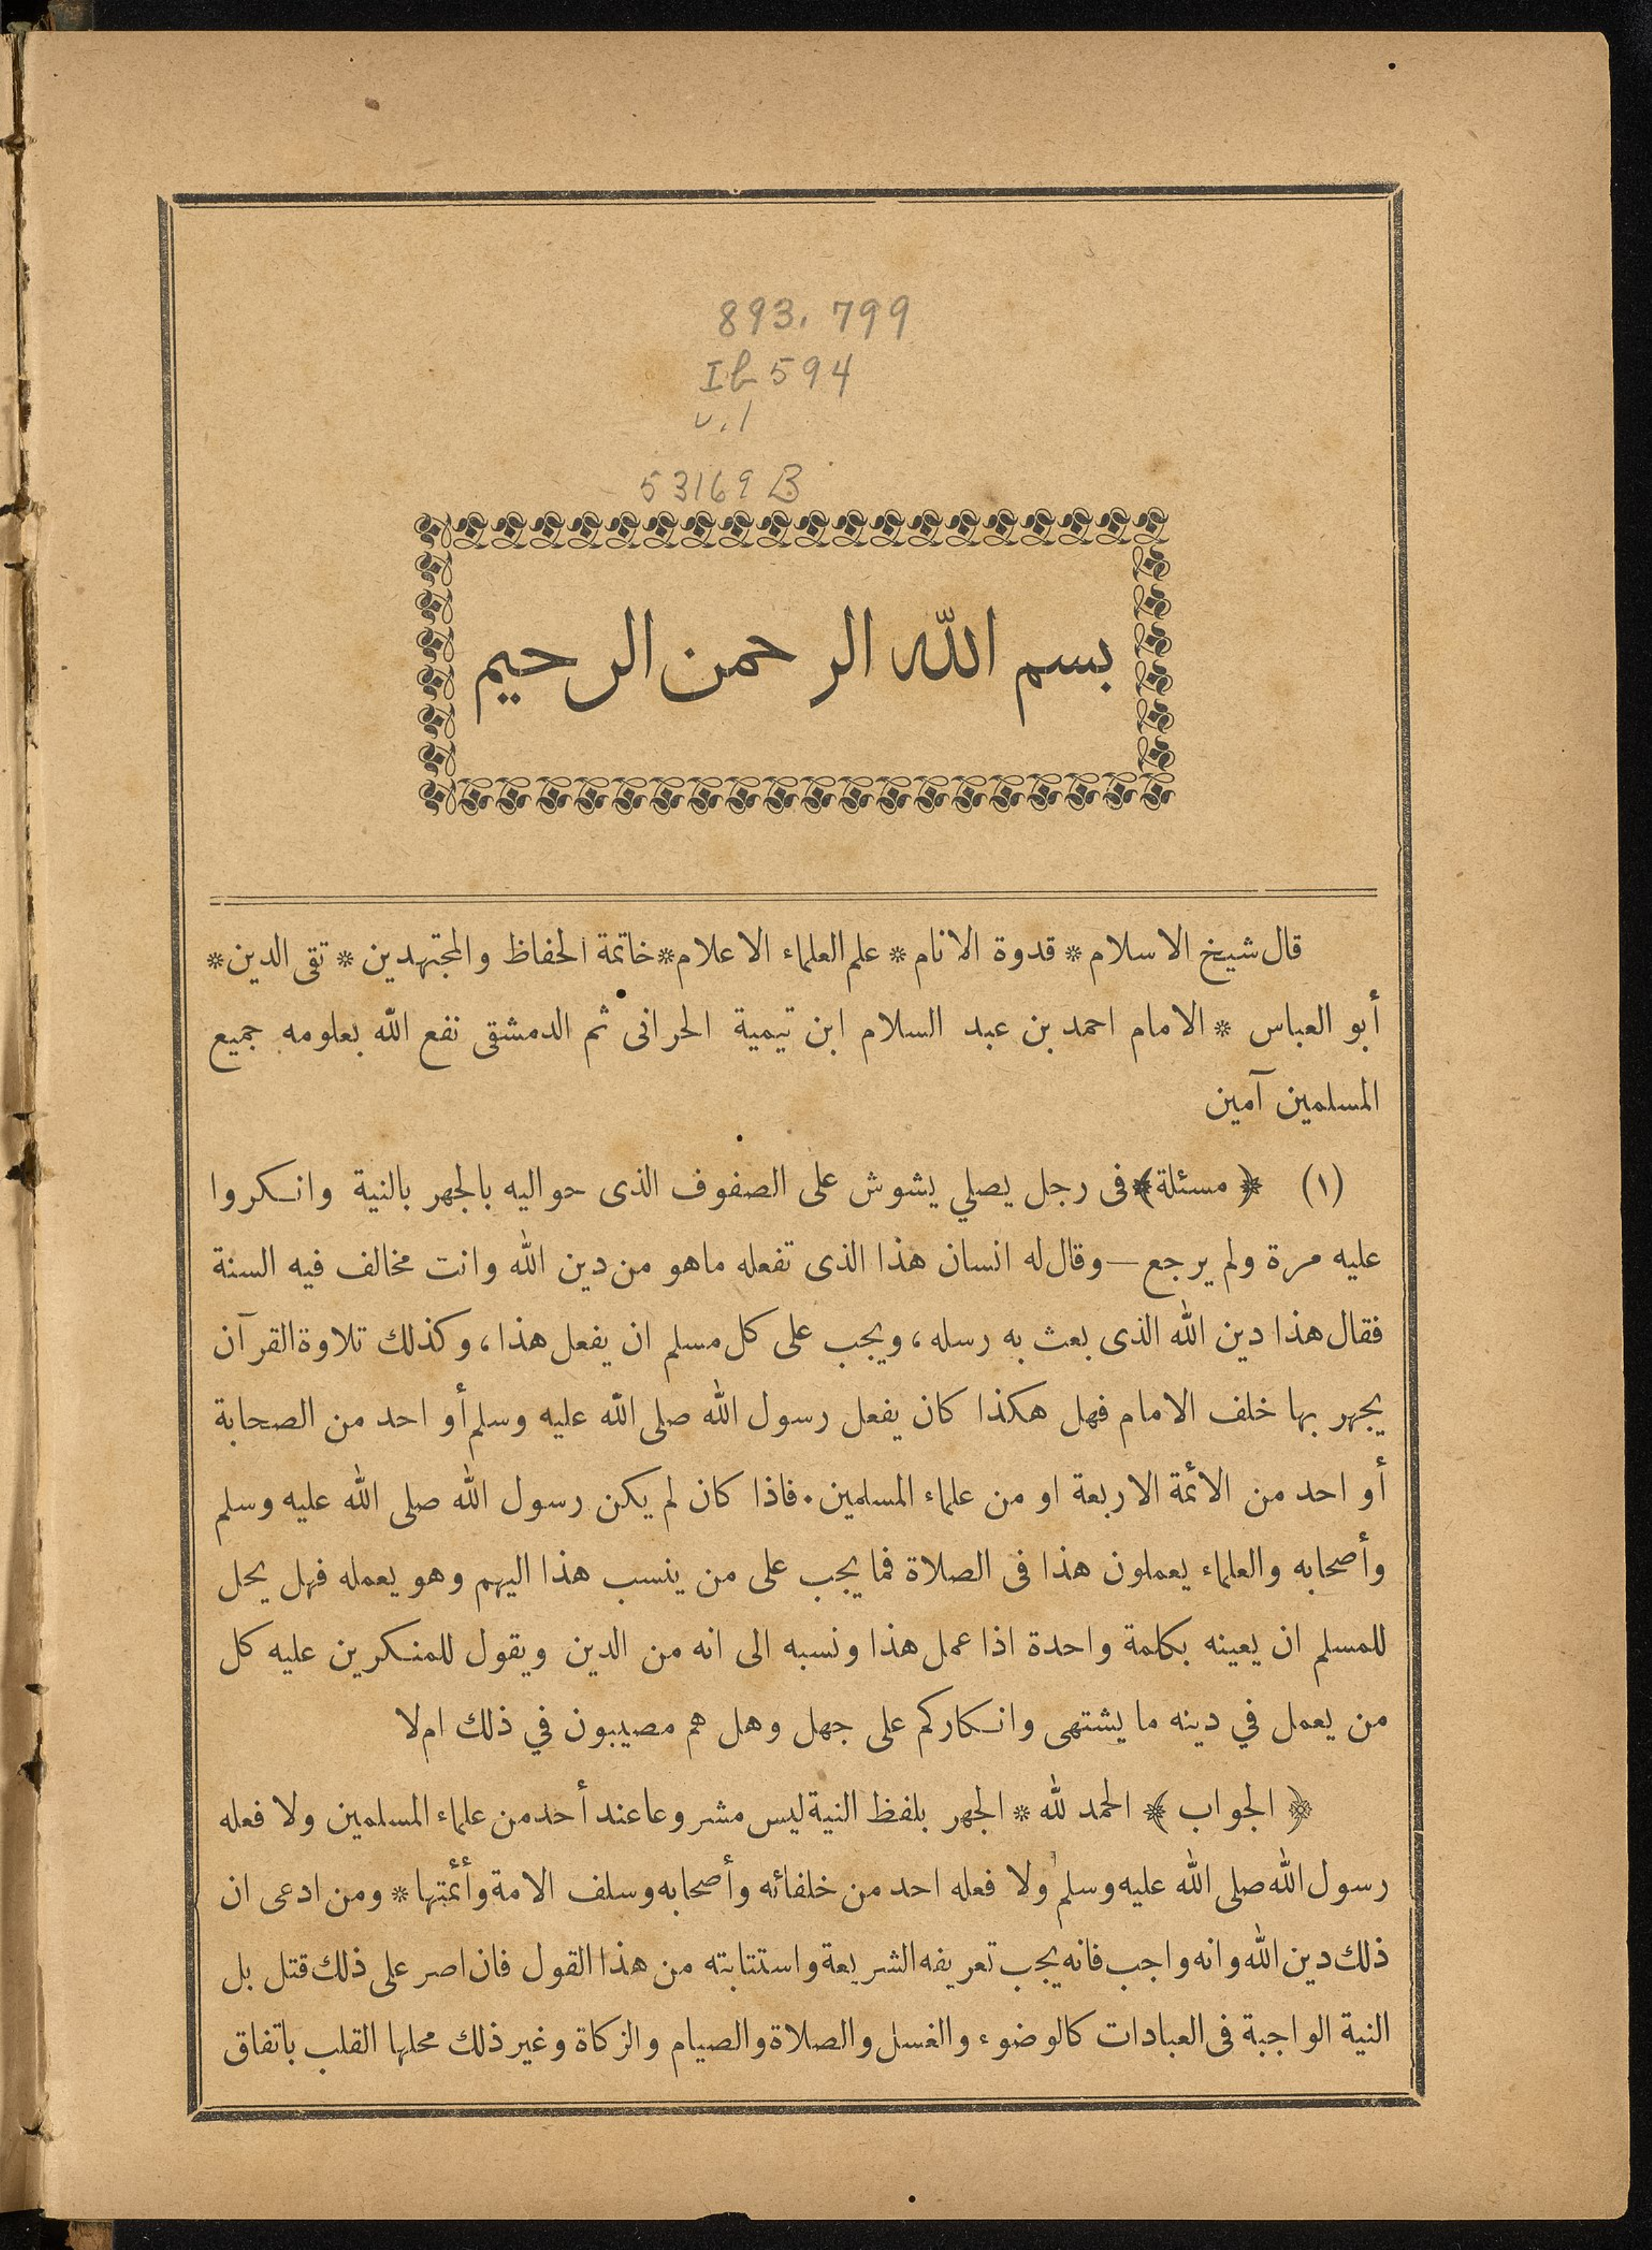 893.799
Ib594
v.1
53169B
بسم الله الرحمن الرحيم
قال شيخ الاسلام * قدوة الانام * علم العلماء الاعلام * خاتمة الحفاظ والمجتهدين * تقى الدين *
أبو العباس * الامام احمد بن عبد السلام ابن تيمية الحرانى ثم الدمشقى نفع الله بعلومه جميع
المسلمين آمين
(١) ﴿ مسئلة ﴾ فى رجل يصلي يشوش على الصفوف الذى حواليه بالجهر بالنية وانكروا
عليه مرة ولم يرجع — وقال له انسان هذا الذى تفعله ماهو من دين الله وانت مخالف فيه السنة
فقال هذا دين الله الذى بعث به رسله ، ويجب على كل مسلم ان يفعل هذا ، وكذلك تلاوة القرآن
يجهر بها خلف الامام فهل هكذا كان يفعل رسول الله صلى الله عليه وسلم أو احد من الصحابة
أو احد من الأئمة الاربعة او من علماء المسلمين . فاذا كان لم يكن رسول الله صلى الله عليه وسلم
وأصحابه والعلماء يعملون هذا فى الصلاة فما يجب على من ينسب هذا اليهم وهو يعمله فهل يحل
للمسلم ان يعينه بكلمة واحدة اذا عمل هذا ونسبه الى انه من الدين ويقول للمنكرين عليه كل
من يعمل في دينه ما يشتهى وانكاركم على جهل وهل هم مصيبون في ذلك ام لا
﴿ الجواب ﴾ الحمد لله * الجهر بلفظ النية ليس مشروعا عند أحد من علماء المسلمين ولا فعله
رسول الله صلى الله عليه وسلم ولا فعله احد من خلفائه وأصحابه وسلف الامة وأئمتها * ومن ادعى ان
ذلك دين الله وانه واجب فانه يجب تعريفه الشريعة واستتابته من هذا القول فان اصر على ذلك قتل بل
النية الواجبة فى العبادات كالوضوء والغسل والصلاة والصيام والزكاة وغير ذلك محلها القلب باتفاق